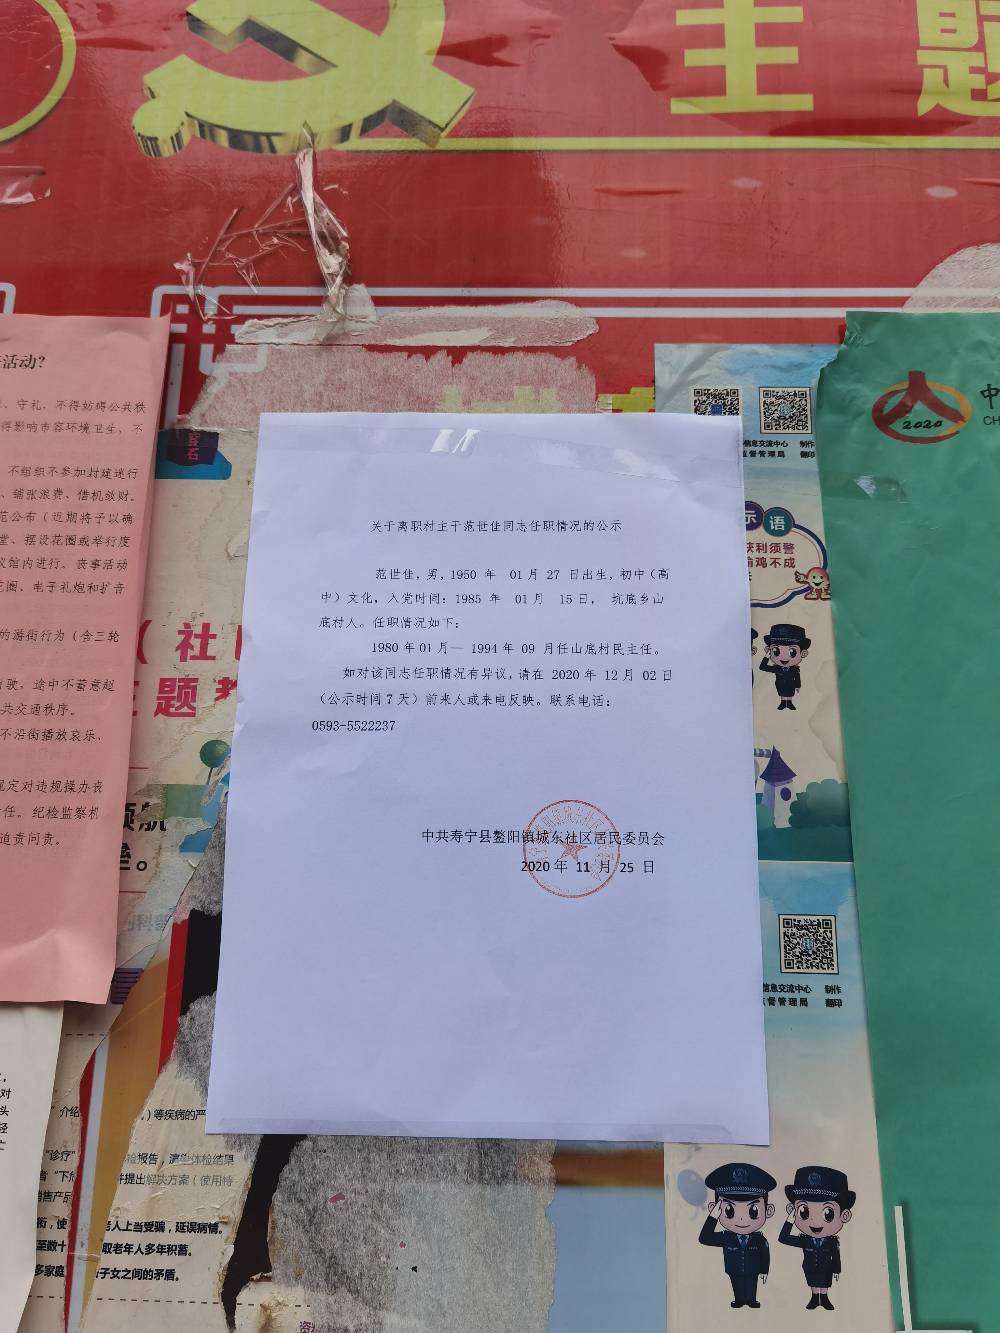 主题
活动？
、守礼、不得妨碍公共秩
得影响市容环境卫生、不
不组织不参加封建迷行
、铺张浪费、借机敛财。
范公布（近期将予以确
堂、摆设花圈或举行度
仪馆内进行。丧事活动
花圈、电子礼炮和扩音
的游街行为（含三轮
驶，途中不蓄意超
共交通秩序。
不沿街播放哀乐、
规定对违规操办丧
任。纪检监察机
追责问责。
关于离职村主干范世佳同志任职情况的公示
范世佳，男，1950 年 01月 27 日出生，初中（高
中）文化，入党时间：1985 年 01月 15日， 坑底乡山
底村人。任职情况如下：
1980年01月—1994年09月任山底村民主任。
如对该同志任职情况有异议，请在 2020年12月02日
（公示时间7天）前来人或来电反映。联系电话：
0593-5522237
中共寿宁县鳌阳镇城东社区居民委员会
2020年 11 月 25 日
2020
中
CH
信息交流中心 制作
监督管理局 翻印
示语
获利须警
偷鸡不成
（社
主题
领航
信息交流中心 制作
监督管理局 翻印
介绍
）等疾病的严
"诊疗"
检报告，
并提出解决方案（使用特
老人上当受骗，延误病情。
取老年人多年积蓄。
多家庭
子女之间的矛盾。